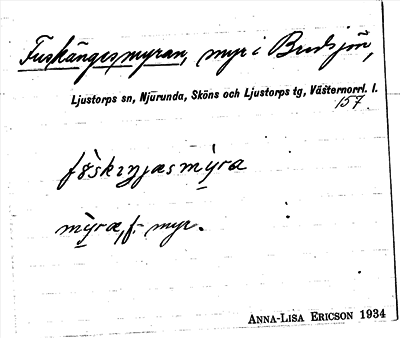 Fuskängesmyran, myr i Bredsjön,
Ljustorps sn, Njurunda, Sköns och Ljustorps tg, Västernorrl. l.
157.
myra, f. myr.
ANNA-LISA ERICSON 1934